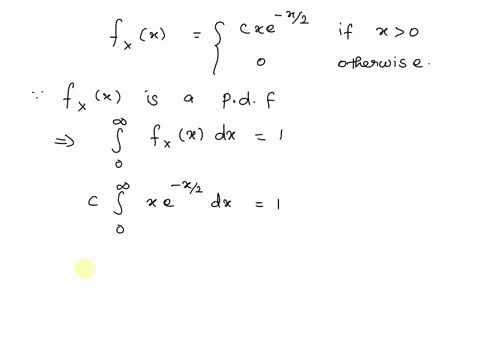 fₓ(x) = { c x e^{-x/2} if x > 0
0 otherwise.
∵ fₓ(x) is a p.d.f
⇒ ∫₀^∞ fₓ(x) dx = 1
c ∫₀^∞ x e^{-x/2} dx = 1